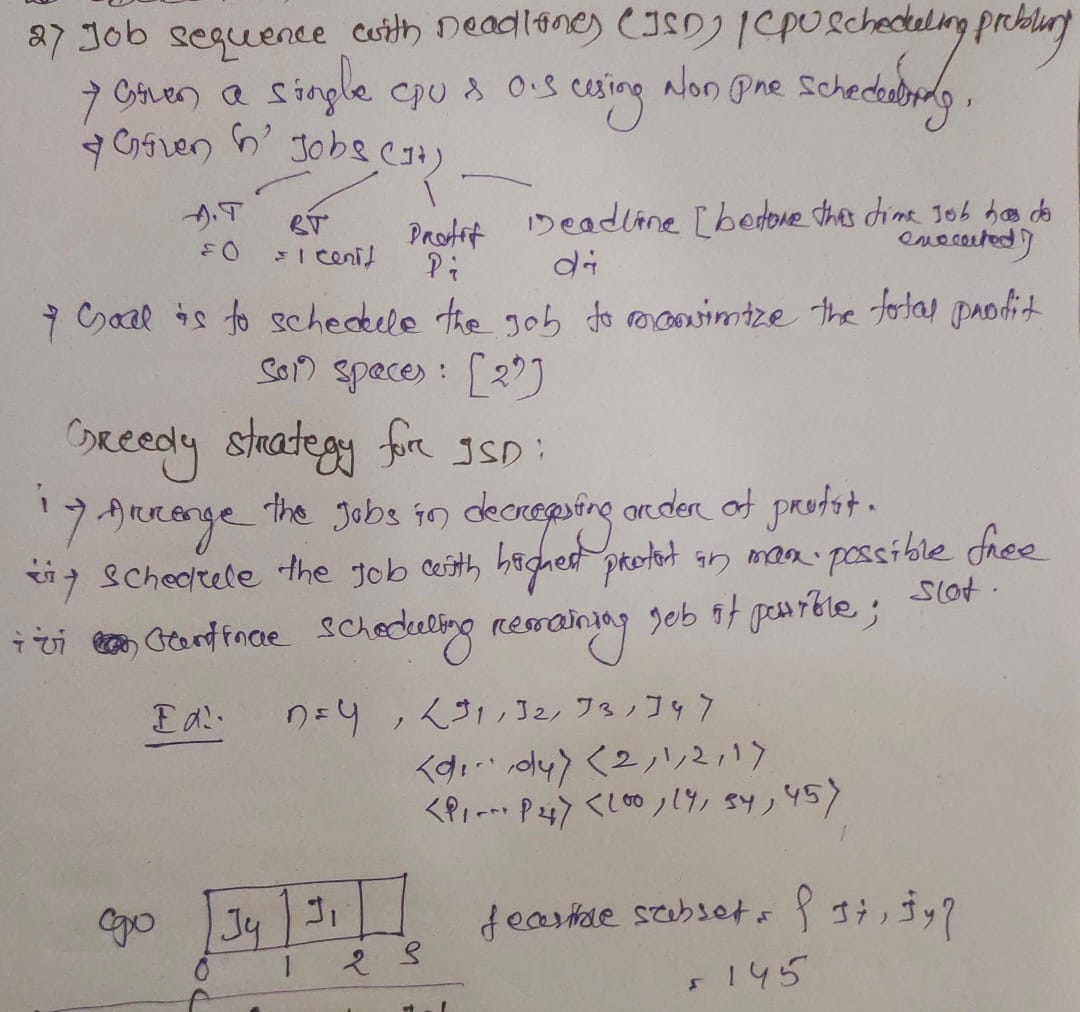 2) Job sequence with Deadlines (JSD) / CPU scheduling problem
→ Given a single CPU & O.S using Non Pre Scheduling.
→ Given 'n' Jobs (Ji)
A.T BT Profit Deadline [before this time Job has to
=0 =1 unit Pi di executed]
→ Goal is to schedule the job to maximize the total profit
Soln spaces : [2ⁿ]
Greedy strategy for JSD :
i → Arrange the Jobs in decreasing order of profit.
ii → Schedule the Job with highest profit in max. possible free
slot.
iii Continue scheduling remaining job if possible ;
Ex:. n=4 , <J1, J2, J3, J4>
<d1...,d4> <2,1,2,1>
<P1,... P4> <100, 14, 34, 45>
CPU J4 J1 feasible subset = { Ji, J4}
0 1 2 3
= 145